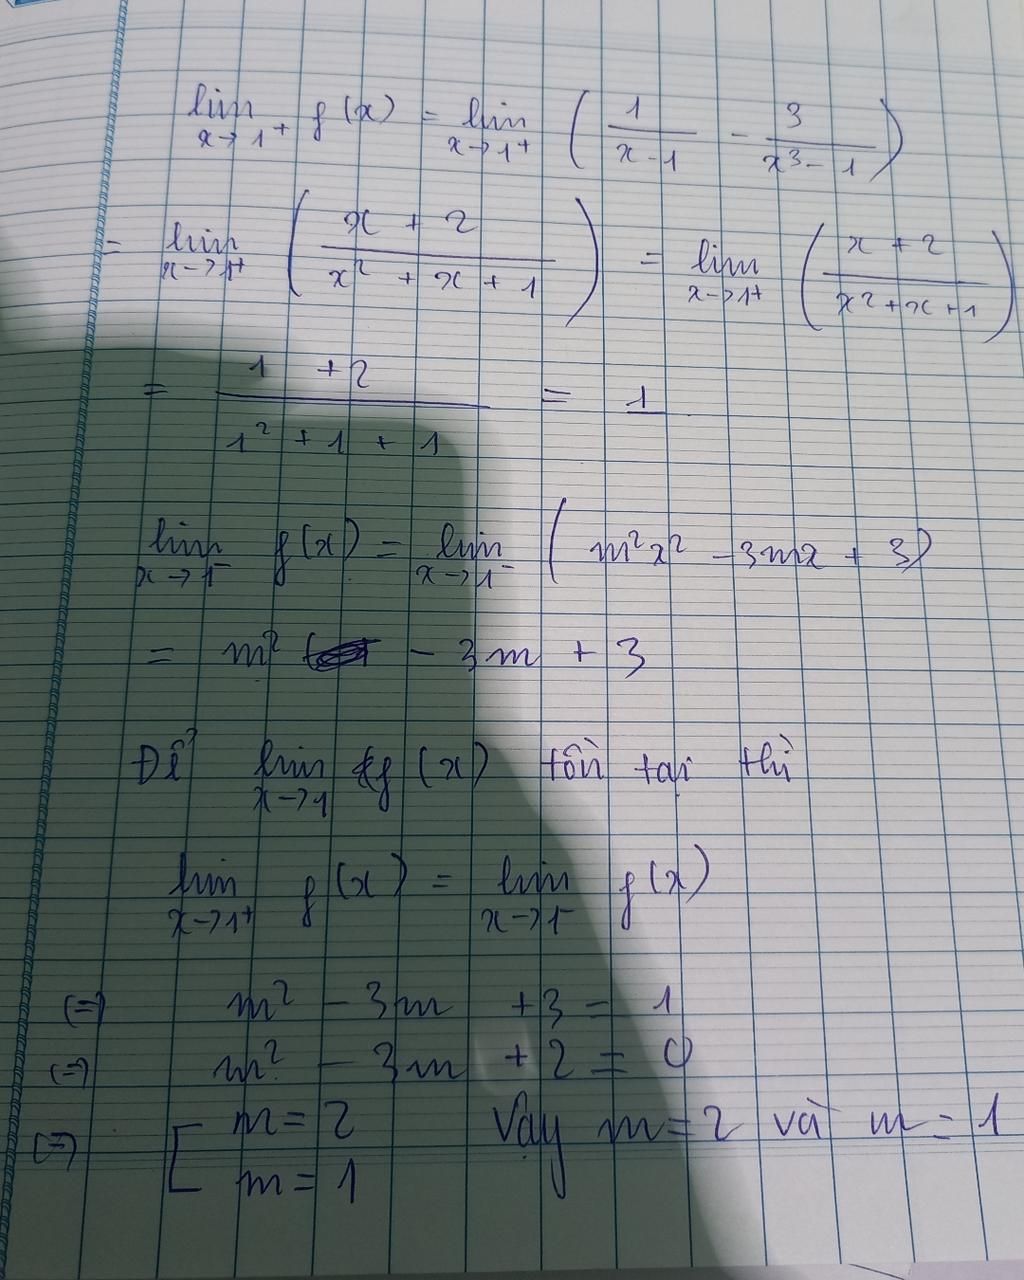 lim x→1⁺ f(x) = lim x→1⁺ ( 1/(x-1) - 3/(x³-1) )
= lim x→1⁺ ( (x+2)/(x²+x+1) ) = lim x→1⁺ ( (x+2)/(x²+x+1) )
= (1+2)/(1²+1+1) = 1
lim x→1⁻ f(x) = lim x→1⁻ ( m²x² - 3mx + 3)
= m² - 3m + 3
Để lim x→1 f(x) tồn tại thì
lim x→1⁺ f(x) = lim x→1⁻ f(x)
(=) m² - 3m + 3 = 1
(=) m² - 3m + 2 = 0
(=) [ m = 2 Vậy m = 2 và m = 1
m = 1